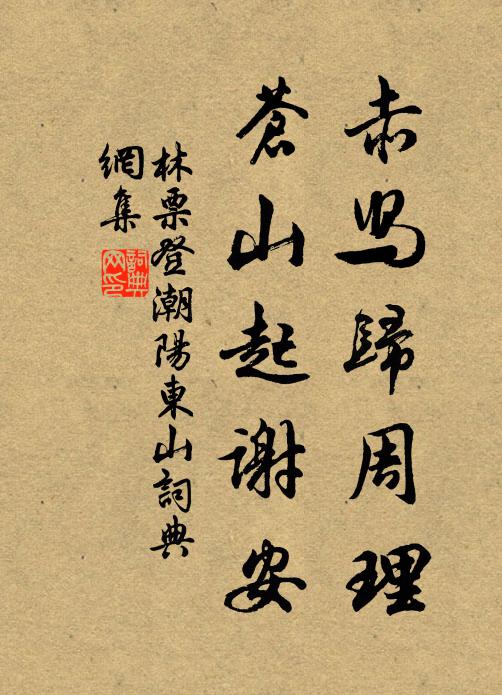 赤舄歸周理
蒼山起謝安
林栗登潮陽東山詞典
網集
詞典
网印